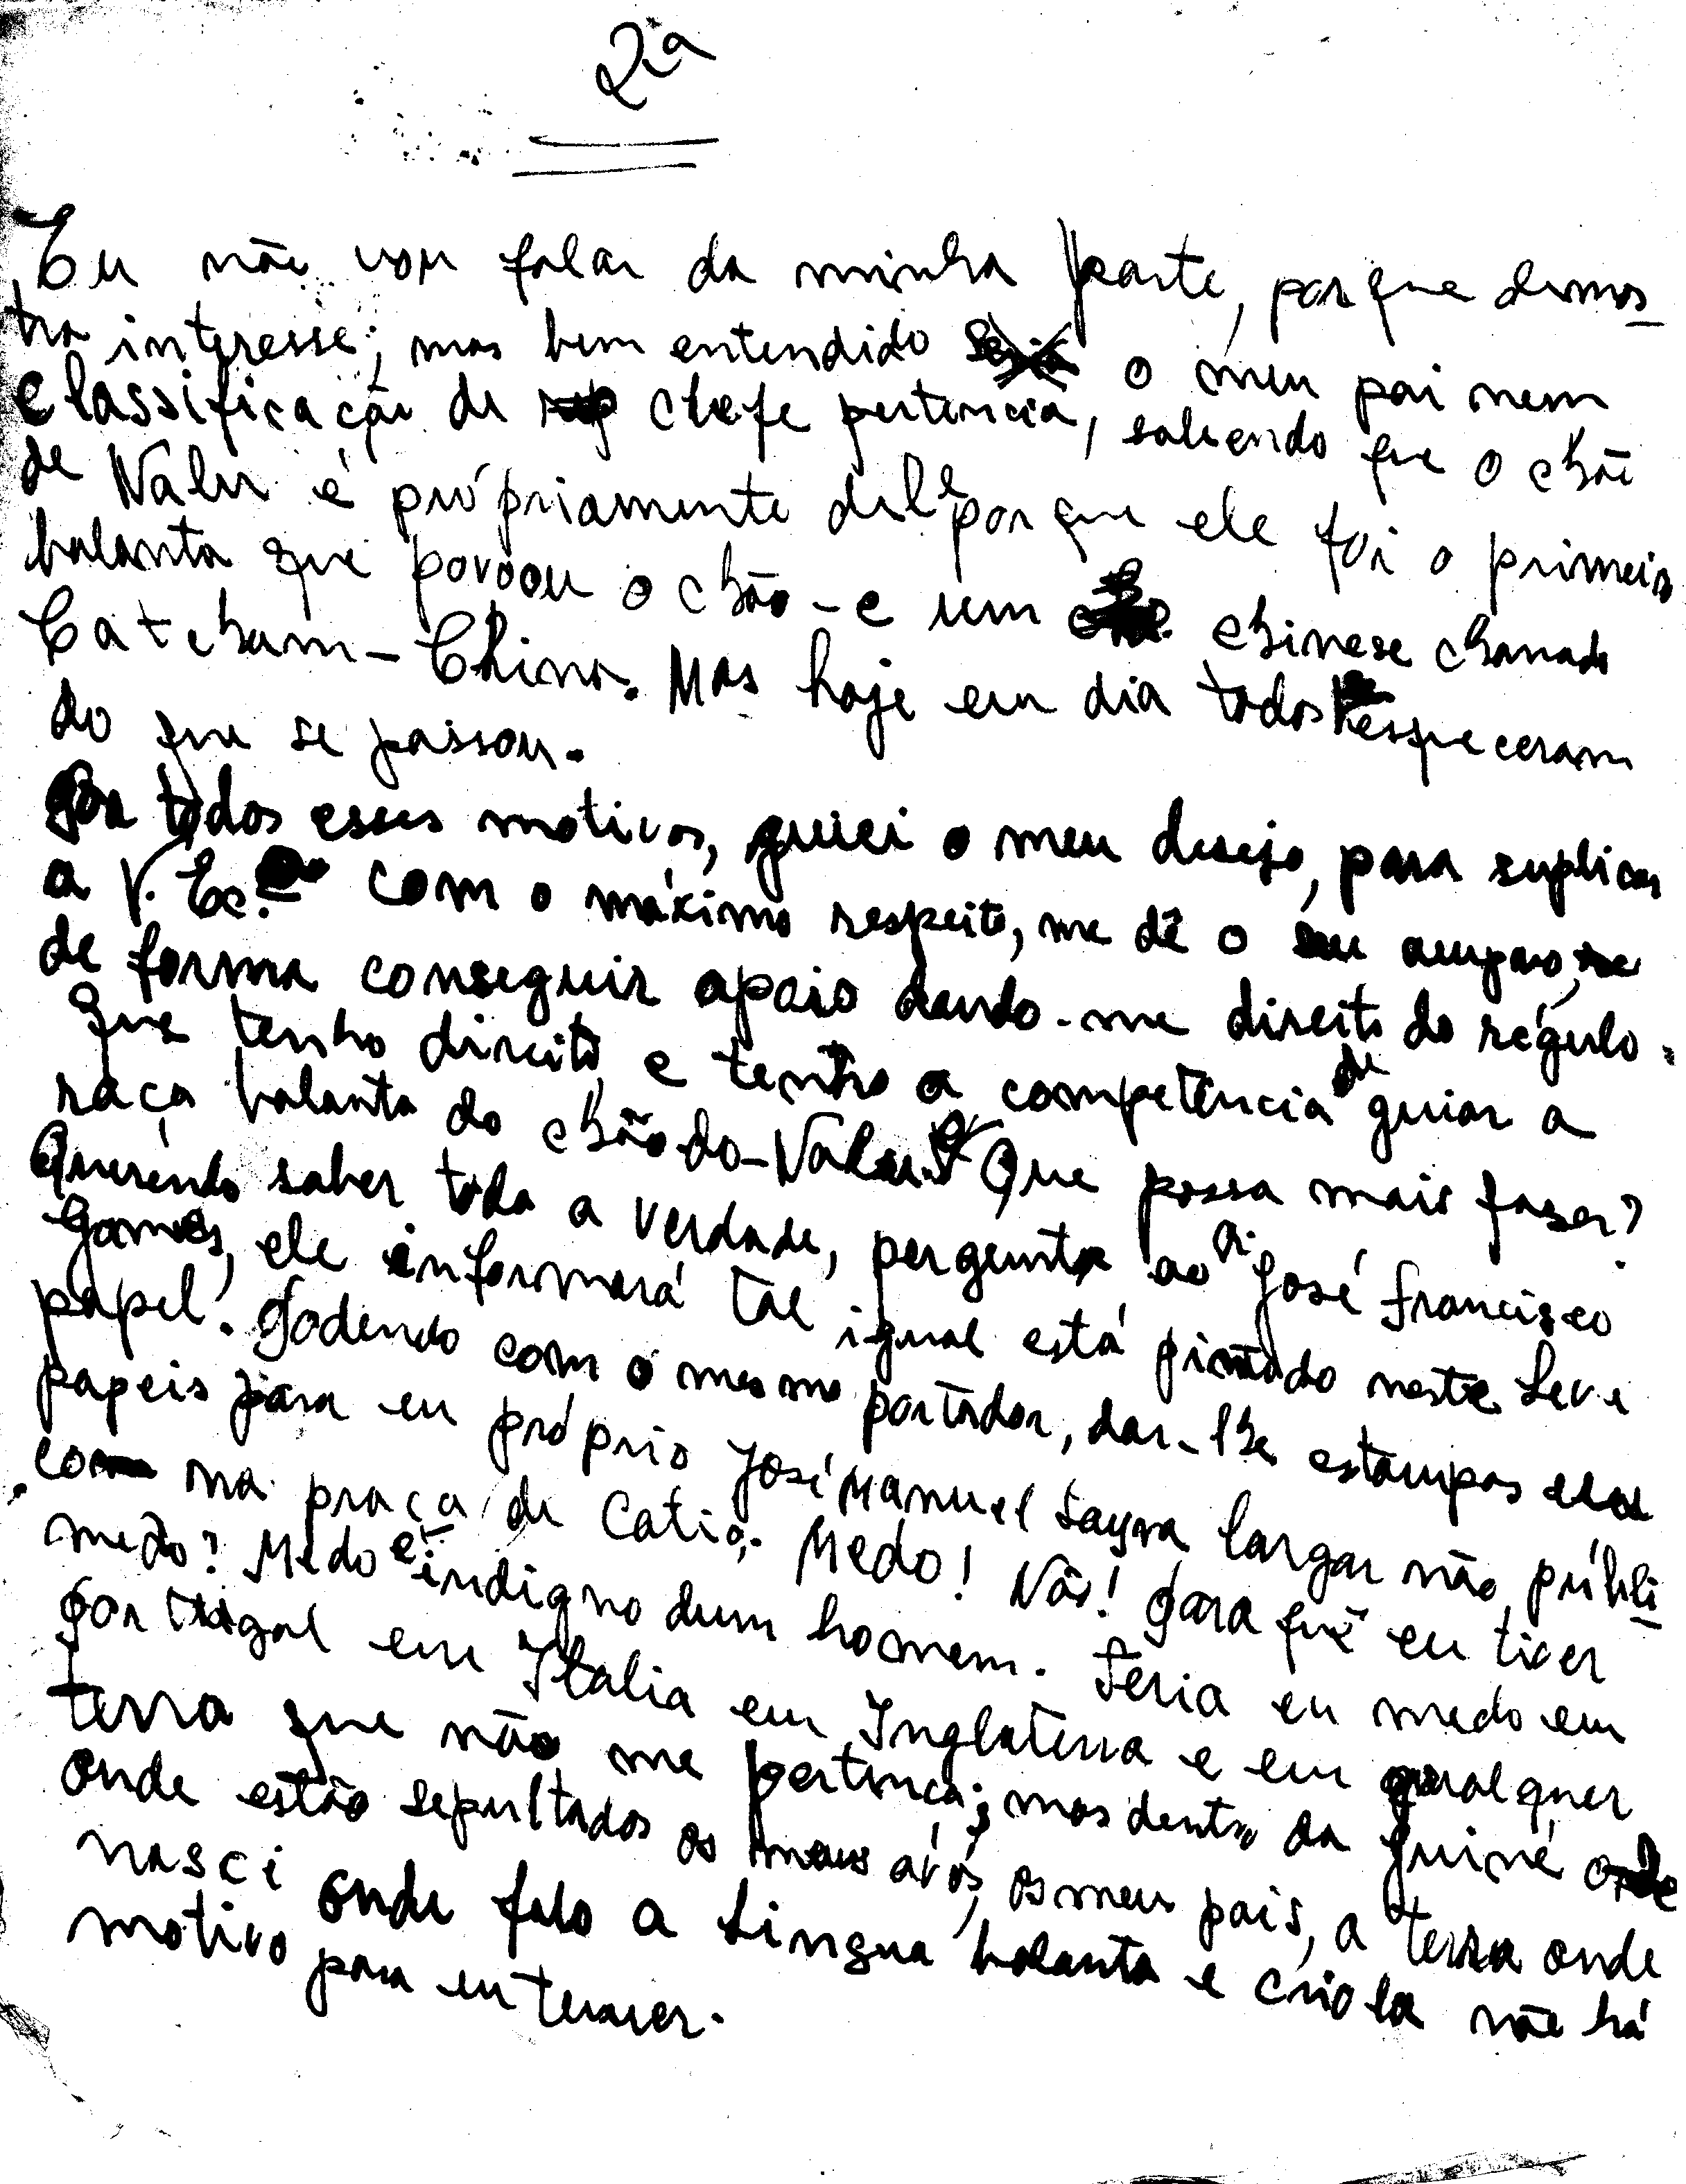 2ª
Eu não vou falar da minha parte, porque demos
tra interesse; mas bem entendido o meu pai nem
classificação de chefe pertencia, sabendo que o chão
de Nalu é própriamente dele porque ele foi o primeiro
balanta que povoou o chão - e um chinese chamado
Catcham - Chino. Mas hoje em dia todos esqueceram
do que se passou.
Por todos esses motivos, guiei o meu desejo, para suplicar
a V. Ex.ª com o máximo respeito, me dê o seu amparo,
de forma conseguir apoio dando-me direito do régulo.
Que tenho direito e tenho a competência de guiar a
raça balanta do chão do-Nalu. Que possa mais fazer?
Querendo saber toda a verdade, pergunta ao José Francisco
Gomes, ele informará tal igual está pintado neste Leve
papel. Podendo com o mesmo portador, dar-lhe estampas
papeis para eu próprio José Manuel Sayna largar não públi
co na praça de Catió. Medo! Não! Para quê eu tiver
medo? Medo é indigno dum homem. Teria eu medo em
Portugal em Italia em Inglaterra e em qualquer
terra que não me pertença; mas dentro da Guiné onde
onde estão sepultados os meus avós, os meus pais, a terra onde
nasci onde falo a Lingua balanta e criola não há
motivo para eu temer.